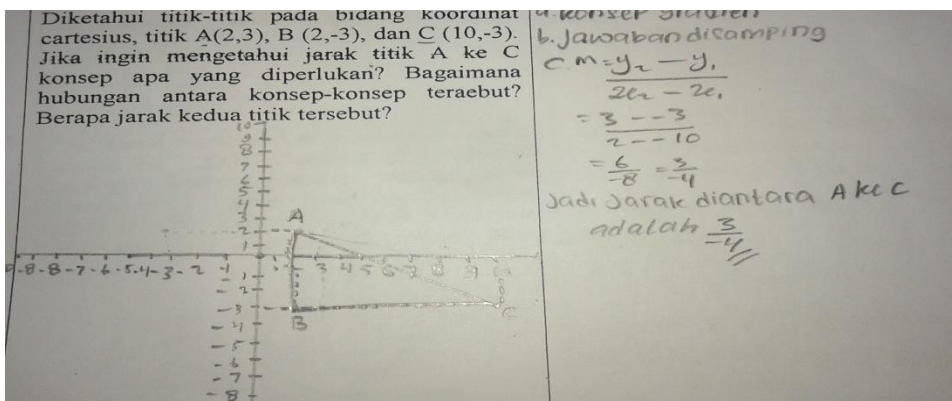 Diketahui titik-titik pada bidang koordinat
cartesius, titik A(2,3), B (2,-3), dan C (10,-3).
Jika ingin mengetahui jarak titik A ke C
konsep apa yang diperlukan? Bagaimana
hubungan antara konsep-konsep teraebut?
Berapa jarak kedua titik tersebut?
10
9
8
7
6
5
4
3
2
1
A
-8 -8 -7 -6 -5 -4 -3 -2 -1 3 4 5 6 7 8 9
- 2
- 3
- 4
- 5
- 6
- 7
- 8
B
C
a. konsep gradien
b. Jawaban disamping
c m = y₂ - y₁
x₂ - x₁
= 3 - -3
2 - -10
= 6/-8 = 3/-4
Jadi Jarak diantara A ke C
adalah 3/-4 //